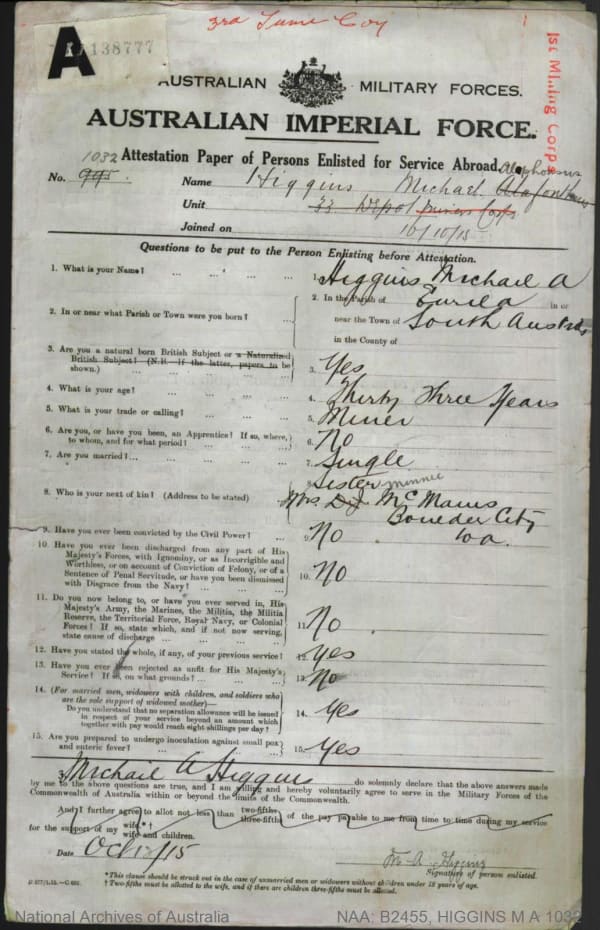 3rd Tunn Coy
A
138777
1st Mining Corps
AUSTRALIAN MILITARY FORCES.
AUSTRALIAN IMPERIAL FORCE.
Attestation Paper of Persons Enlisted for Service Abroad.
No. 995. 1032
Name Higgins Michael Alophonsus
Unit 33 Depot Miners Corps
Joined on 10/10/15
Questions to be put to the Person Enlisting before Attestation.
1. What is your Name? ... ... ... ... 1. Higgins Michael A
2. In or near what Parish or Town were you born? ... 2. In the Parish of in or
near the Town of South Austral
in the County of
3. Are you a natural born British Subject or a Naturalized British Subject? (N.B. If the latter, papers to be shown.) ... ... ... 3. Yes
4. What is your age? ... ... ... ... 4. Thirty Three Years
5. What is your trade or calling? ... ... ... 5. Miner
6. Are you, or have you been, an Apprentice? If so, where, to whom, and for what period? ... ... ... 6. No
7. Are you married?... ... ... ... 7. Single
Sister Minnie
8. Who is your next of kin? (Address to be stated) ... Mrs. D J McManus
Boulder City
W a
9. Have you ever been convicted by the Civil Power? ... 9. No
10. Have you ever been discharged from any part of His Majesty's Forces, with Ignominy, or as Incorrigible and Worthless, or on account of Conviction of Felony, or of a Sentence of Penal Servitude, or have you been dismissed with Disgrace from the Navy? ... ... ... 10. No
11. Do you now belong to, or have you ever served in, His Majesty's Army, the Marines, the Militia, the Militia Reserve, the Territorial Force, Royal Navy, or Colonial Forces? If so, state which, and if not now serving, state cause of discharge ... ... ... 11. No
12. Have you stated the whole, if any, of your previous service? 12. Yes
13. Have you ever been rejected as unfit for His Majesty's Service? If so, on what grounds? ... ... ... 13. No
14. (For married men, widowers with children, and soldiers who are the sole support of widowed mother)—
Do you understand that no separation allowance will be issued in respect of your service beyond an amount which together with pay would reach eight shillings per day? 14. Yes
15. Are you prepared to undergo inoculation against small pox and enteric fever? ... ... ... 15. Yes
I, Michael A Higgins do solemnly declare that the above answers made
by me to the above questions are true, and I am willing and hereby voluntarily agree to serve in the Military Forces of the
Commonwealth of Australia within or beyond the limits of the Commonwealth.
And I further agree to allot not less than two-fifths three-fifths of the pay payable to me from time to time during my service
for the support of my wife*† wife and children.
Date Oct /15
M A Higgins
Signature of person enlisted.
*This clause should be struck out in the case of unmarried men or widowers without children under 18 years of age.
†Two-fifths must be allotted to the wife, and if there are children three-fifths must be allotted.
National Archives of Australia
NAA: B2455, HIGGINS M A 1032